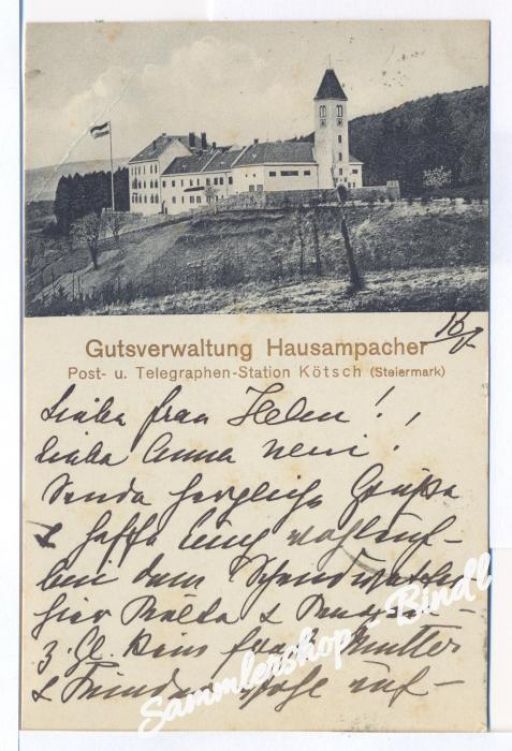 16/V
Gutsverwaltung Hausampacher
Post- u. Telegraphen-Station Kötsch (Steiermark)
Liebe Frau Helen!
Liebe Anna Neni!
Sende herzliche Grüße
& hoffe Euch wohlauf -
bei dem
hier Kälte &
z. Gl. kein Mutter
& Kinder auf -
Sammlershop - Bindl